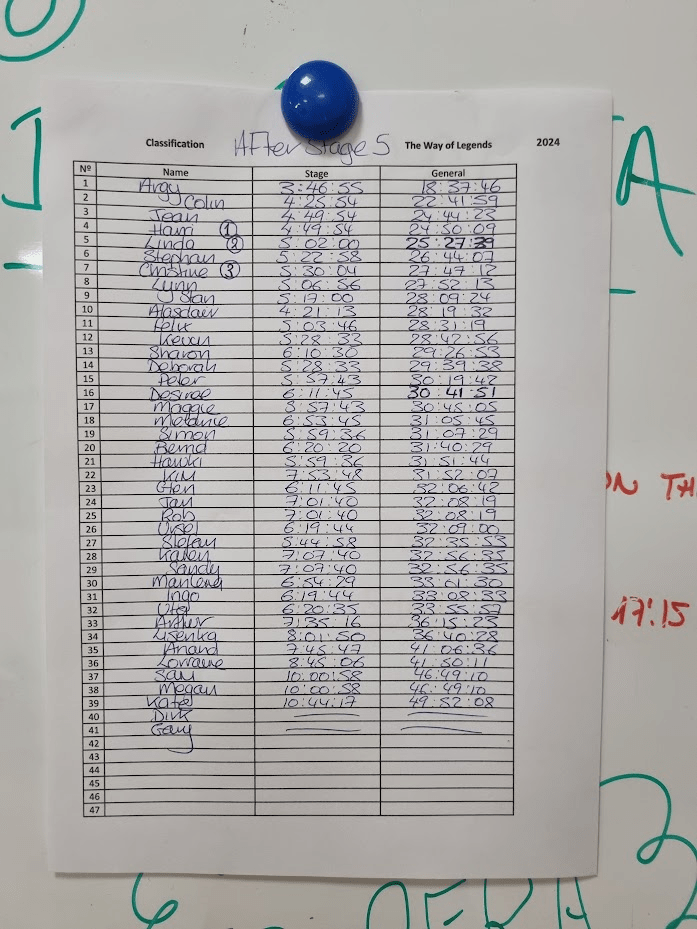 Classification After Stage 5 The Way of Legends 2024
Nº Name Stage General
1 Argy 3:46:55 18:37:46
2 Colin 4:25:54 22:41:59
3 Jean 4:49:54 24:44:23
4 Harri ① 4:49:54 24:50:09
5 Linda ② 5:02:00 25:27:39
6 Stephan 5:22:58 26:44:07
7 Christine ③ 5:30:04 27:47:12
8 Lynn 5:06:56 27:52:13
9 Stan 5:17:00 28:09:24
10 Alasdair 4:21:13 28:19:32
11 Felix 5:03:46 28:31:19
12 Kevin 5:28:33 28:42:56
13 Sharon 6:10:30 29:26:53
14 Deborah 5:28:33 29:39:38
15 Peter 5:57:43 30:19:42
16 Desiree 6:11:45 30:41:51
17 Maggie 5:57:43 30:45:05
18 Melanie 6:53:45 31:05:45
19 Simon 5:59:36 31:07:29
20 Bernd 6:20:20 31:40:29
21 Hawki 5:59:36 31:51:44
22 Kim 7:53:48 31:52:07
23 Glen 6:11:45 32:06:42
24 Jan 7:01:40 32:08:19
25 Rob 7:01:40 32:08:19
26 Ursel 6:19:44 32:09:00
27 Stefan 5:44:58 32:35:53
28 Karen 7:07:40 32:56:35
29 Sandy 7:07:40 32:56:35
30 Marilena 6:54:29 33:01:30
31 Ingo 6:19:44 33:08:33
32 6:20:35 33:55:57
33 Arthur 7:35:16 36:15:23
34 Lisenka 8:01:50 36:40:28
35 Anand 7:45:47 41:06:36
36 Lorraine 8:45:06 41:50:11
37 Sam 10:00:58 46:49:10
38 Megan 10:00:58 46:49:10
39 Katja 10:44:17 49:52:08
40 Dirk
41 Gary
42
43
44
45
46
47
ON TH
17:15